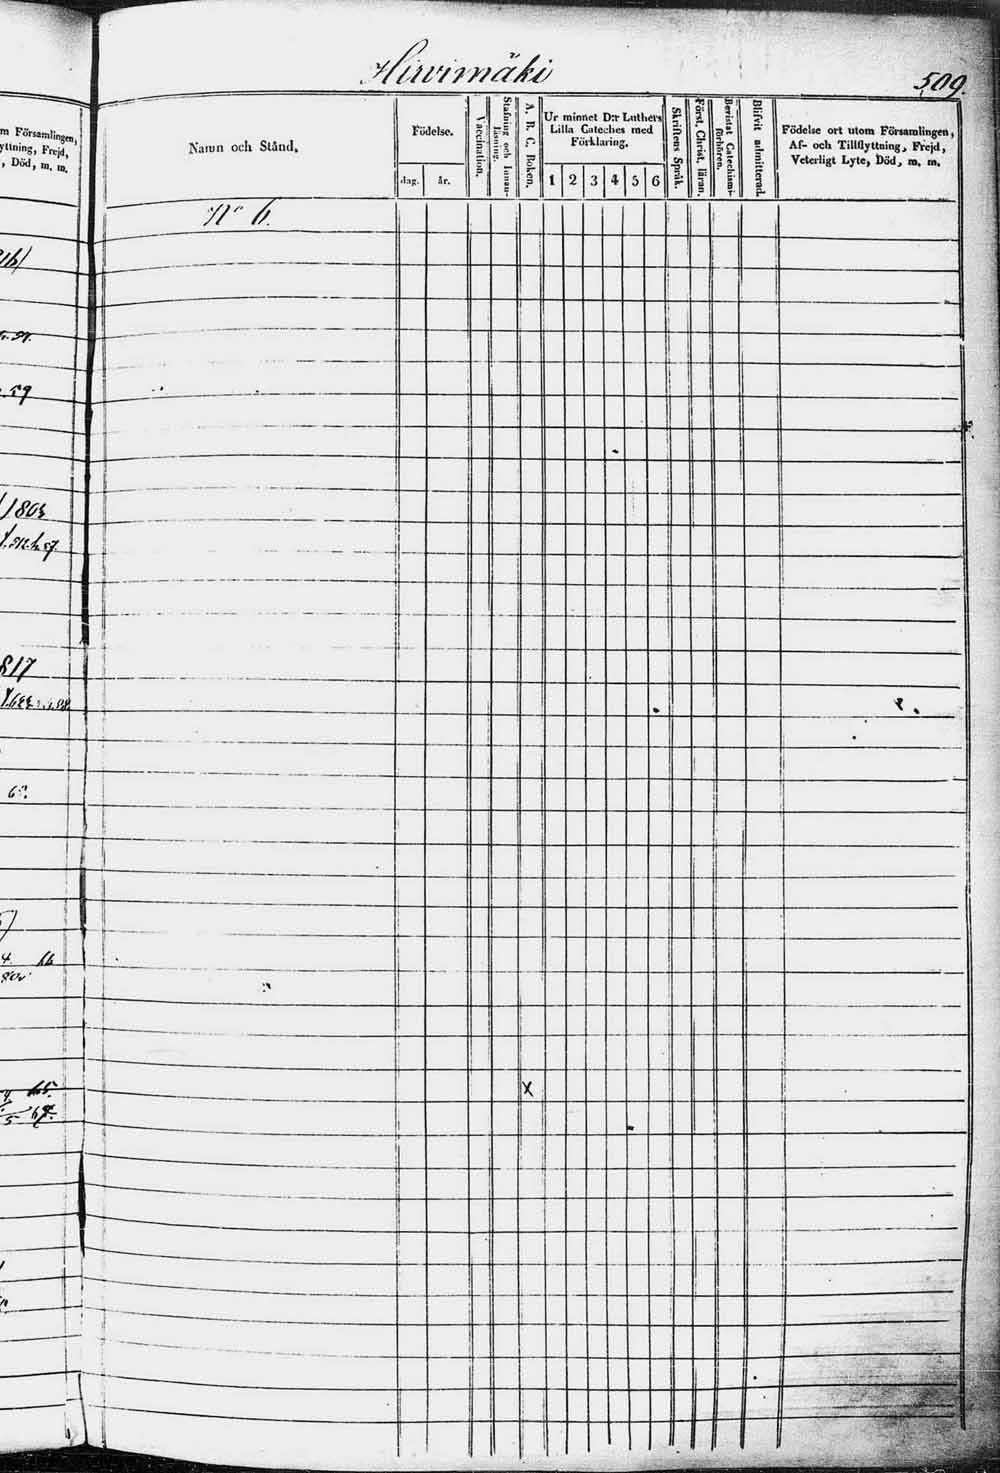 Hirvimäki
509.
m Församlingen,
yttning, Frejd,
, Död, m. m.
Namn och Stånd.
Födelse.
dag.
år.
Vaccination.
Stafning och Innan-
läsning.
A. B. C. Boken.
Ur minnet D:r Luthers
Lilla Cateches med
Förklaring.
1 2 3 4 5 6
Skriftens Språk.
Först. Christ. läran.
Bevistat Catechismi-
förhören.
Blifvit admitterad.
Födelse ort utom Församlingen,
Af- och Tillflyttning, Frejd,
Veterligt Lyte, Död, m. m.
N:o 6.
59
1803
817
66
X
65.
67.